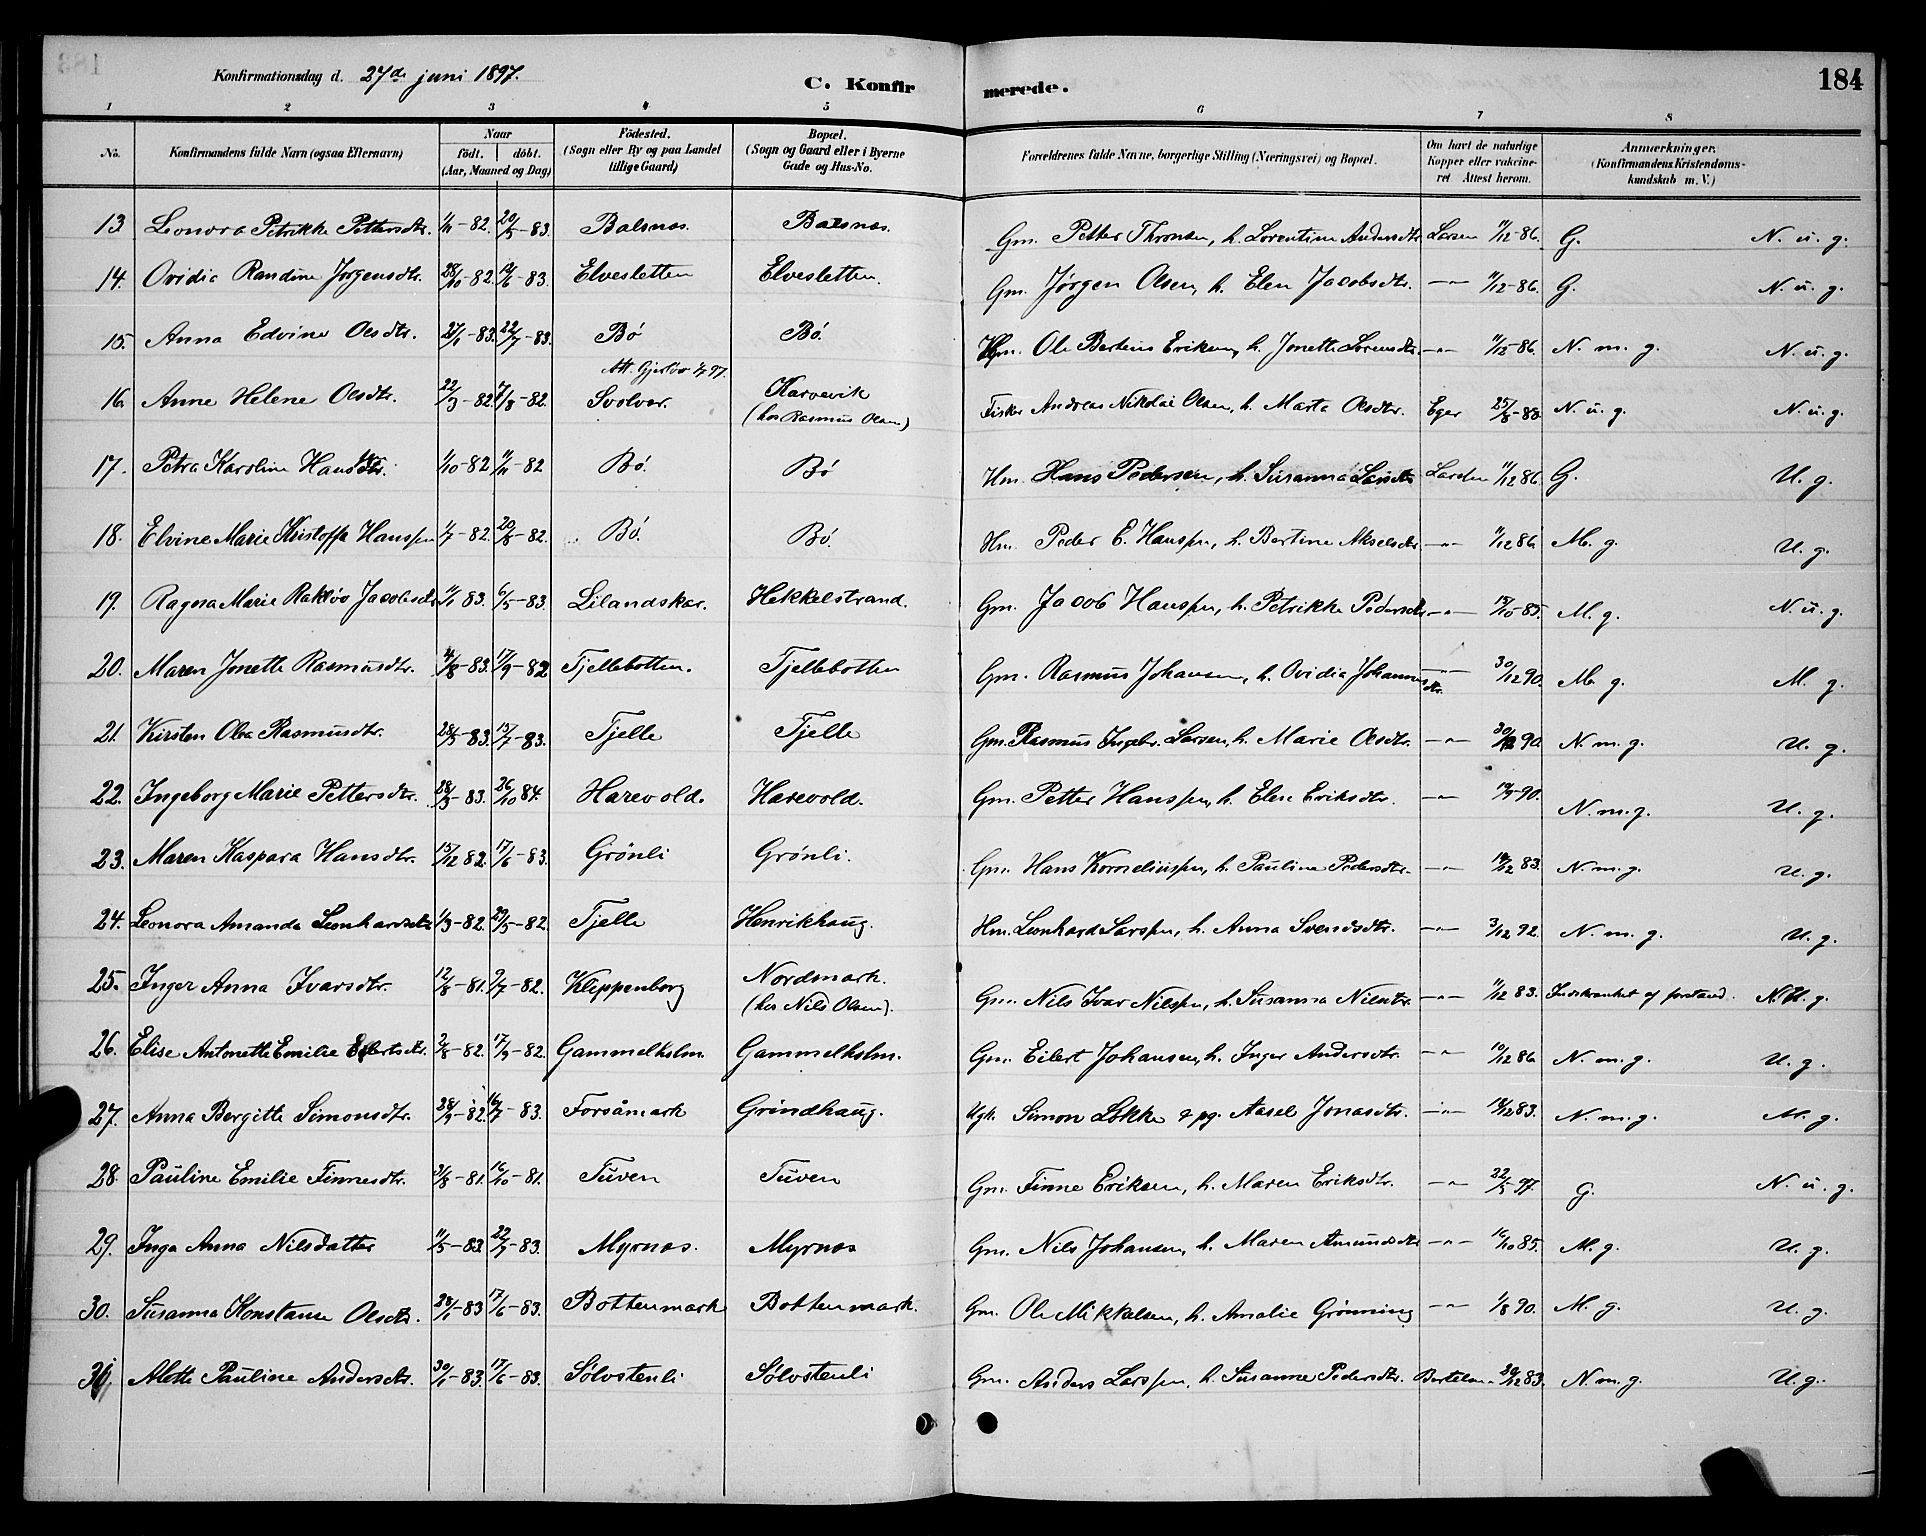 Konfirmationsdag d. 27de juni 1897.
C. Konfirmerede.
184
1 2 3 4 5 6 7 8
No. Konfirmandens fulde Navn (ogsaa Efternavn) Naar födt. döbt. (Aar, Maaned og Dag) Födested. (Sogn eller By og paa Landet tillige Gaard) Bopæl. (Sogn og Gaard eller i Byerne Gade og Hus-No. Forældrenes fulde Navne, borgerlige Stilling (Næringsvei) og Bopæl. Om havt de naturlige Kopper eller vakcineret Attest herom. Anmærkninger. (Konfirmandens Kristendomskundskab m. V.)
13. Leonora Petrikke Pettersdtr. 1/11-82. 20/5-83. Balsnes. Balsnes. Gm. Petter Thronsen, h. Lorentine Andersdtr Larsen 11/12-86. G. N. u. g.
14. Ovidia Randine Jørgensdtr. 28/10-82. 6-83. Elvesletten Elvesletten. Gm. Jørgen Olsen, h. Elen Jacobsdtr. -"- 11/12-86. G. N. u. g.
15. Anna Edvine Olsdtr. 27/1-83. 22/7-83. Bö Bö. Ole Berteus Eriksen, h. Jonette Lorensdtr. -"- 11/12-86. N. m. g. N. u. g.
Att.
16. Anne Helene Olsdtr. 22/3-82. 7/8-82. Svolvær. Karvevik (hos Rasmus Olsen) Fisker Andreas Nikolai Olsen, h. Marta Olsdtr. Eger 25/8-88. N. u. g. N. u. g.
17. Petra Karoline Hansdtr. 1/10-82 11/11-82 Bö. Bö Hm. Hans Pedersen, h. Susanna Larsdtr Larsen 11/12 86. G. U. g.
18. Elvine Marie Kristoffa Hanssen 1/7-82. 20/8-82. Bö. Bö. Hm. Peder E. Hanssen, h. Bertine Akselsdtr -"- 11/12 86. M. g. U. g.
19. Ragna Marie Jacobsdtr 11/1 83. 6/5-83. Lilandskar. Hekkelstrand. Gm. Jacob Hanssen, h. Petrikke Pedersdtr -"- 15/10-85. M. g. N. u. g.
20. Maren Jonette Rasmusdtr. 4/8-83. 17/9-82 Tjellebotten. Tjellebotten Gm. Rasmus Johansen, h. Ovidia Johannesdtr. -"- 30/12 90. M. g. M. g.
21. Kirsten Olea Rasmusdtr. 28/5-83. 15/7-83. Tjelle Tjelle Gm. Rasmus Ingebr. Larsen, h. Marie Olsdtr. -"- 30/12 90 N. m. g. U. g.
22. Ingeborg Marie Pettersdtr. 28/3-83. 26/10 84. Harevold. Harevold. Gm. Petter Hanssen, h. Elen Eriksdtr. -"- 90. N. m. g. U. g.
23. Maren Kaspara Hansdtr. 15/12 82. 17/6-83. Grönli Grönli. Gm. Hans Korneliussen, h. Pauline Pedersdtr. -"- 83. N. m. g. U. g.
24. Leonora Amanda Leonhardsdtr 1/3-82. 29/5-82. Tjelle Henrikhaug. Hm. Leonhard Larssen, h. Anna Svendsdtr. -"- 3/12 92. N. m. g. U. g.
25. Inger Anna Ivarsdtr. 12/8-81. 9/7-82. Kleppenborg Nordmark. (hos Nils Olsen). Gm. Nils Ivar Nilssen, h. Susanna Nilsdtr. -"- 11/12 83. Indskrænket af forstand. N. u. g.
26. Elise Antonette Emilie Eilertsdtr. 2/8-82. 17/9-82. Gammelholm. Gammelholm. Gm. Eilert Johansen, h. Inger Andersdtr. -"- 10/12 86. N. m. g. U. g.
27. Anna Bergitte Simonsdtr. 28/9-82. 83. Forsåmark Grindhaug. Ugk. Simon Lökke & pg. Aasel Jonasdtr. -"- 83. N. m. g. M. g.
28. Pauline Emilie Finnesdtr. 3/8-81. 16/10-81. Tuven Tuven Gm. Finne Eriksen, h. Maren Eriksdtr. -"- 22/5-97. G. N. u. g.
29. Inga Anna Nilsdatter 11/5-83. 22/7-83. Myrnes. Myrnes Gm. Nils Johansen, h. Maren Amundsdtr -"- 16/10 85. M. g. U. g.
30. Susanna Konstanse Olsdtr. 28/1-83 17/6-83. Bottenmark Bottenmark. Gm. Ole Mikkelsen, h. Amalie Grönning -"- 1/8 90. M. g. U. g.
31. Alette Pauline Andersdtr. 30/1-83. 17/6-83. Sölvstenli Sölvstenli Gm. Anders Larssen, h. Susanne Pedersdtr. Bertelsen 20/12 83. N. m. g. U. g.